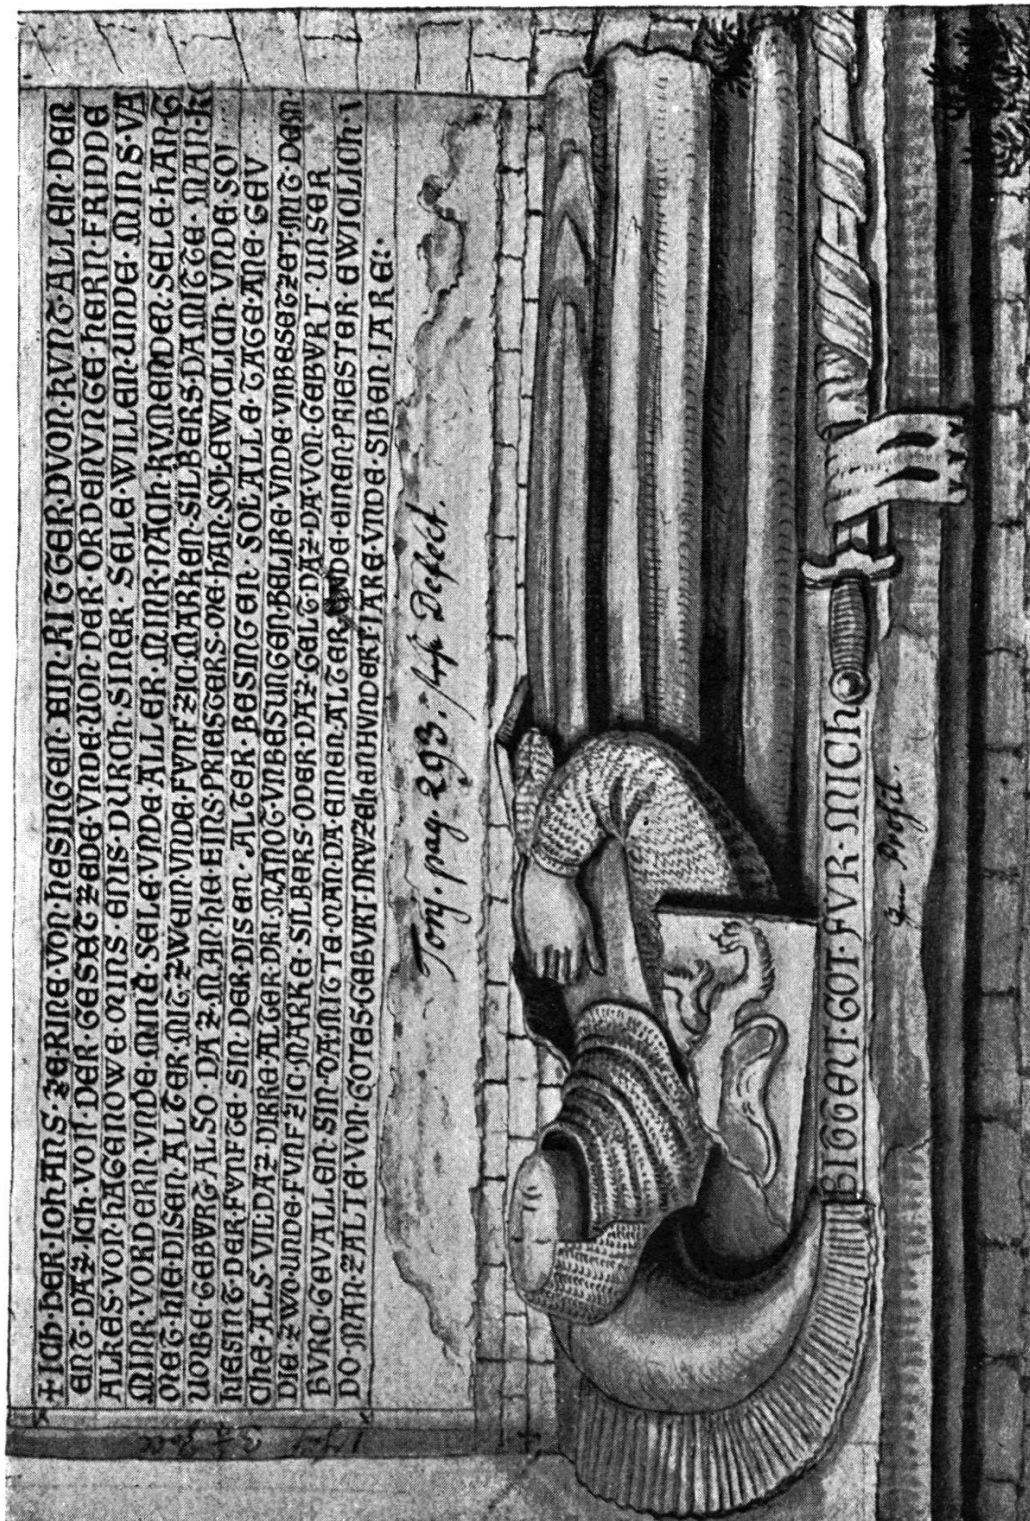 + ICH · BER · IOHANS · ZERINE · VON · HESINGEN · EIN · RITTER · DVON · KVNT · ALLEN · DEN
ENT · DAZ · ICH · VON · DER · GESATZEDE · VNDE · VON · DER · ORDENVNGE · HERN · FRIDDE
ALKES · VON · HAGENOWE · MINS · ENIS · DVRCH · SINER · SELE · WILLEN · UNDE · MINS · VA
MINR · VORDERN · VNDE · MINE · SELE · VNDE · ALLER · MINR · NACH · KVMENDEN · SELE · HAN · G
MET · HIE · DISEN · ALTER · MIT · ZWEIN · VNDE · FVNFZIC · MARKEN · SILBERS · DAMITTE · MAN · K
VOBE · GEBVRT · ALSO · DAZ · MAN · HIE · EINS · PRIESTERS · ME · HAN · SOL · EWICLICH · VNDE · SO
HIESINT · DER · FVNFTE · SIN · DER · DISEN · ALTER · BESINGEN · SOL · ALLE · TAGE · ANE · GEV
CHE · ALS · VIL · DAZ · DIRRE · ALTER · DRI · MANOT · VNBESUNGEN · BELIBE · VNDE · VNBESETZET · MIT · DEM ·
DIE · ZWO · UNDE · FVNFZIC · MARKE · SILBERS · ODER · DAZ · GELT · DAZ · DA · VON · GEBVRT · UNSER
BVRC · GEVALLEN · SIN · DAMITTE · MAN · DA · EINEN · ALTER · ENDE · EINEN · PRIESTER · EWICLICH · V
DO · MAN · ZALTE · VON · GOTES · GEBVRT · DRVZEHENHVNDERT · IARE · VNDE · SIBEN · IARE :·
Tom j. pag. 293. Defect.
BIGGENT · GOT · FVR · MICH
Profil.